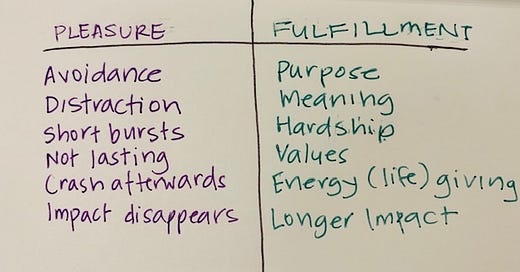 PLEASURE
Avoidance
Distraction
Short bursts
Not lasting
Crash afterwards
Impact disappears
FULFILLMENT
Purpose
Meaning
Hardship
Values
Energy (life) giving
Longer Impact